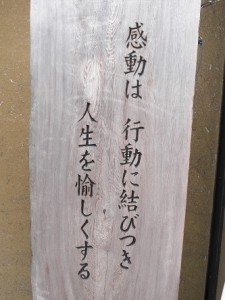 感動は 行動に結びつき
人生を愉しくする